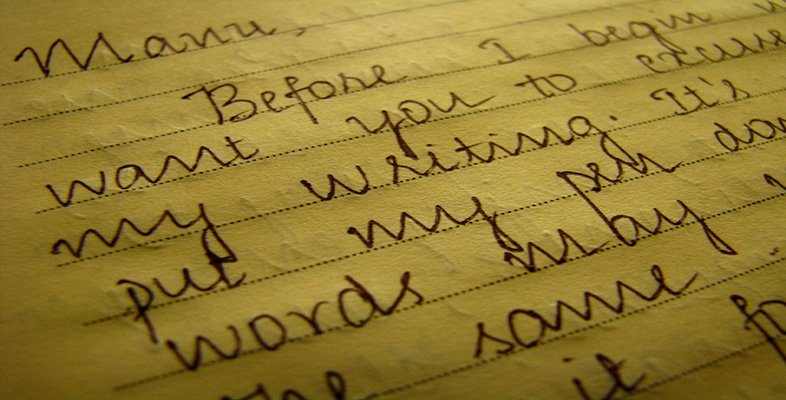 Manu,
Before I begin
want you to excuse
my writing. It's
put my pen
words may
the same
it